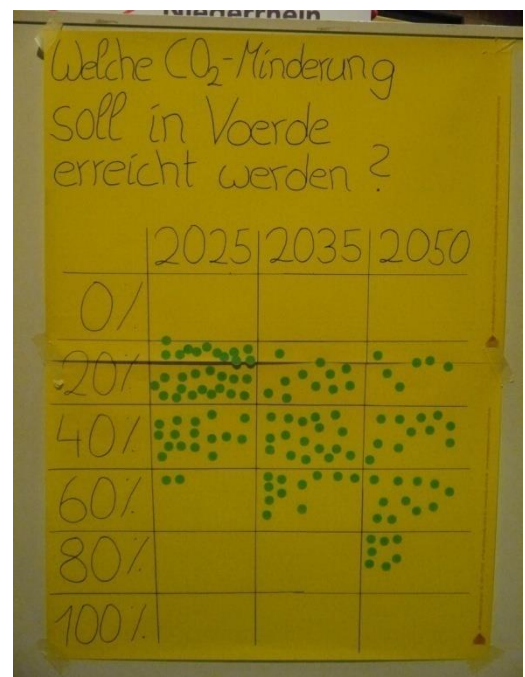 Niederrhein
Welche CO₂-Minderung
soll in Voerde
erreicht werden ?
2025 2035 2050
0%
20%
40%
60%
80%
100%